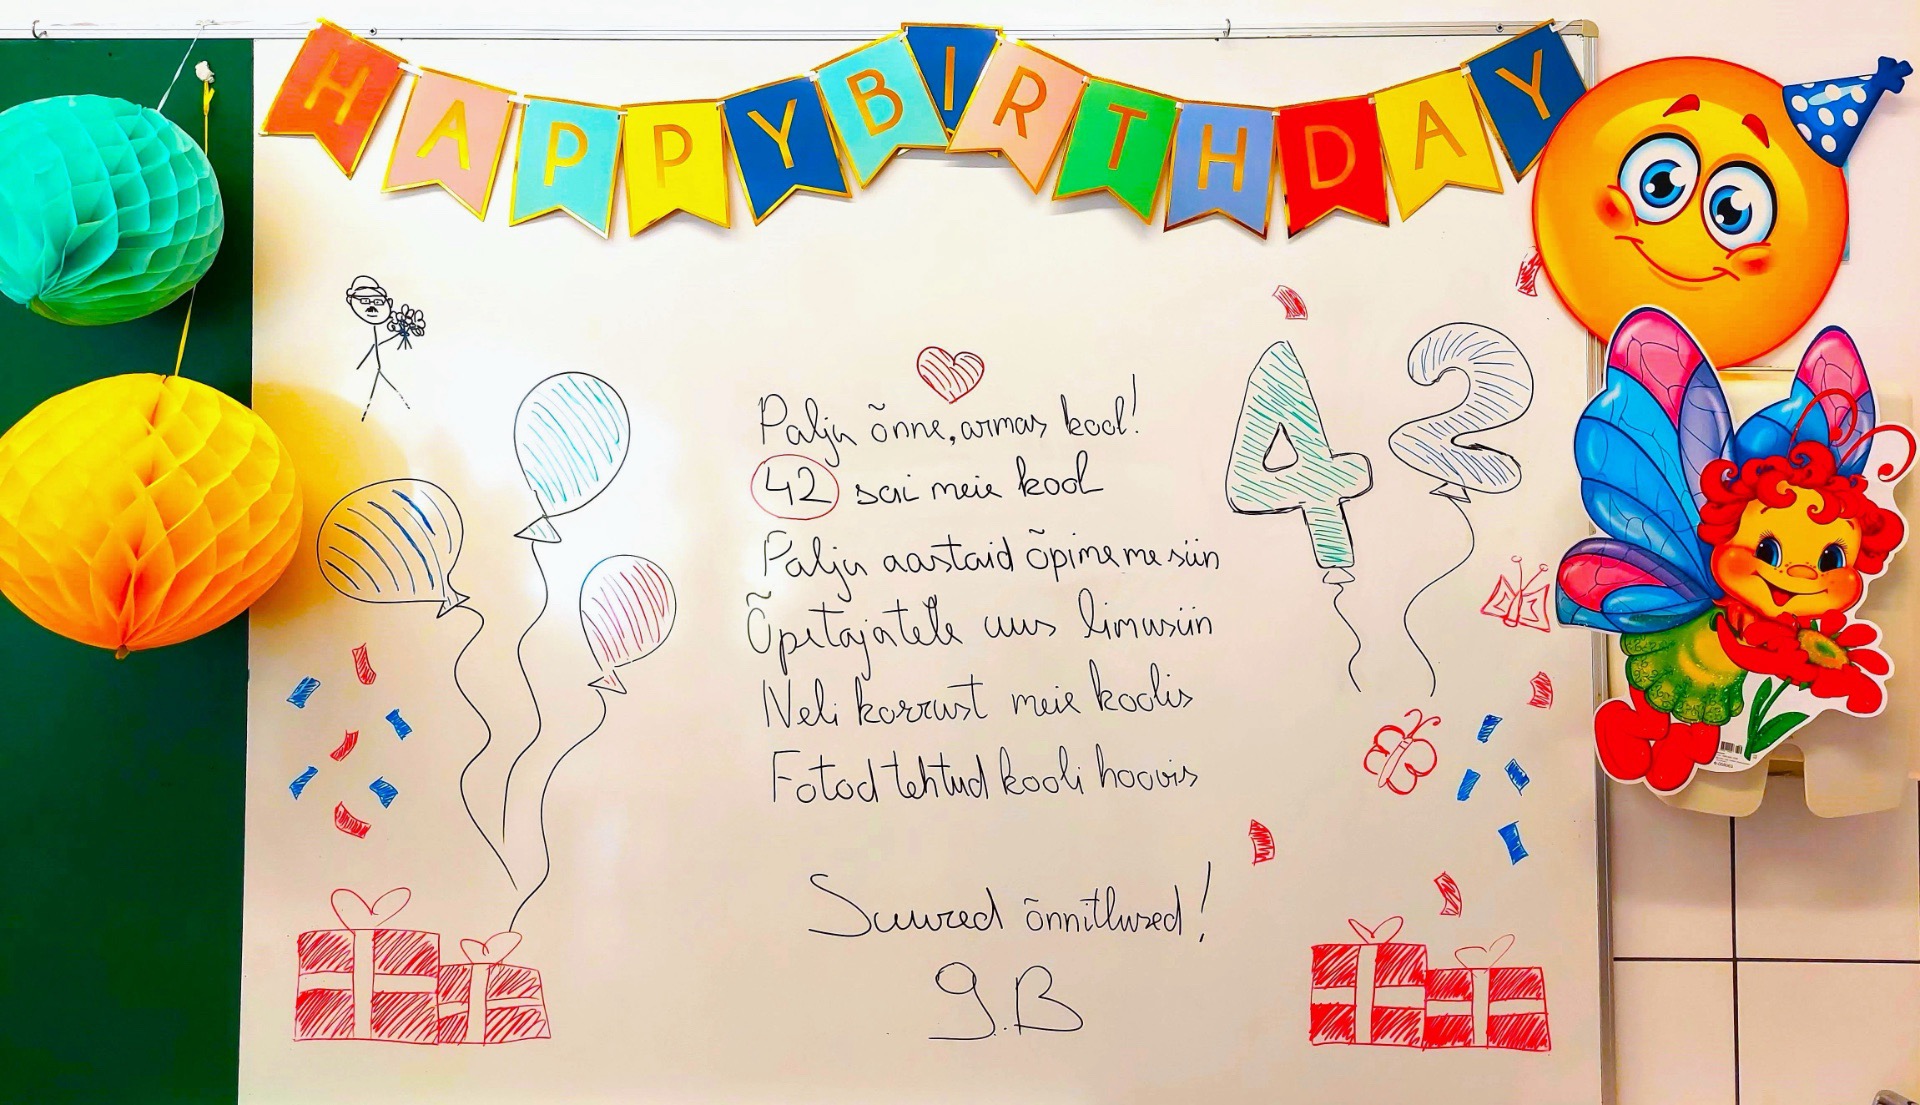 HAPPY BIRTHDAY
Palju õnne, armas kool!
42 sai meie kool
Palju aastaid õpime me siin
Õpetajatele uus limusiin
Neli korrust meie koolis
Fotod tehtud kooli hoovis
Suured õnnitlused!
9.B
42